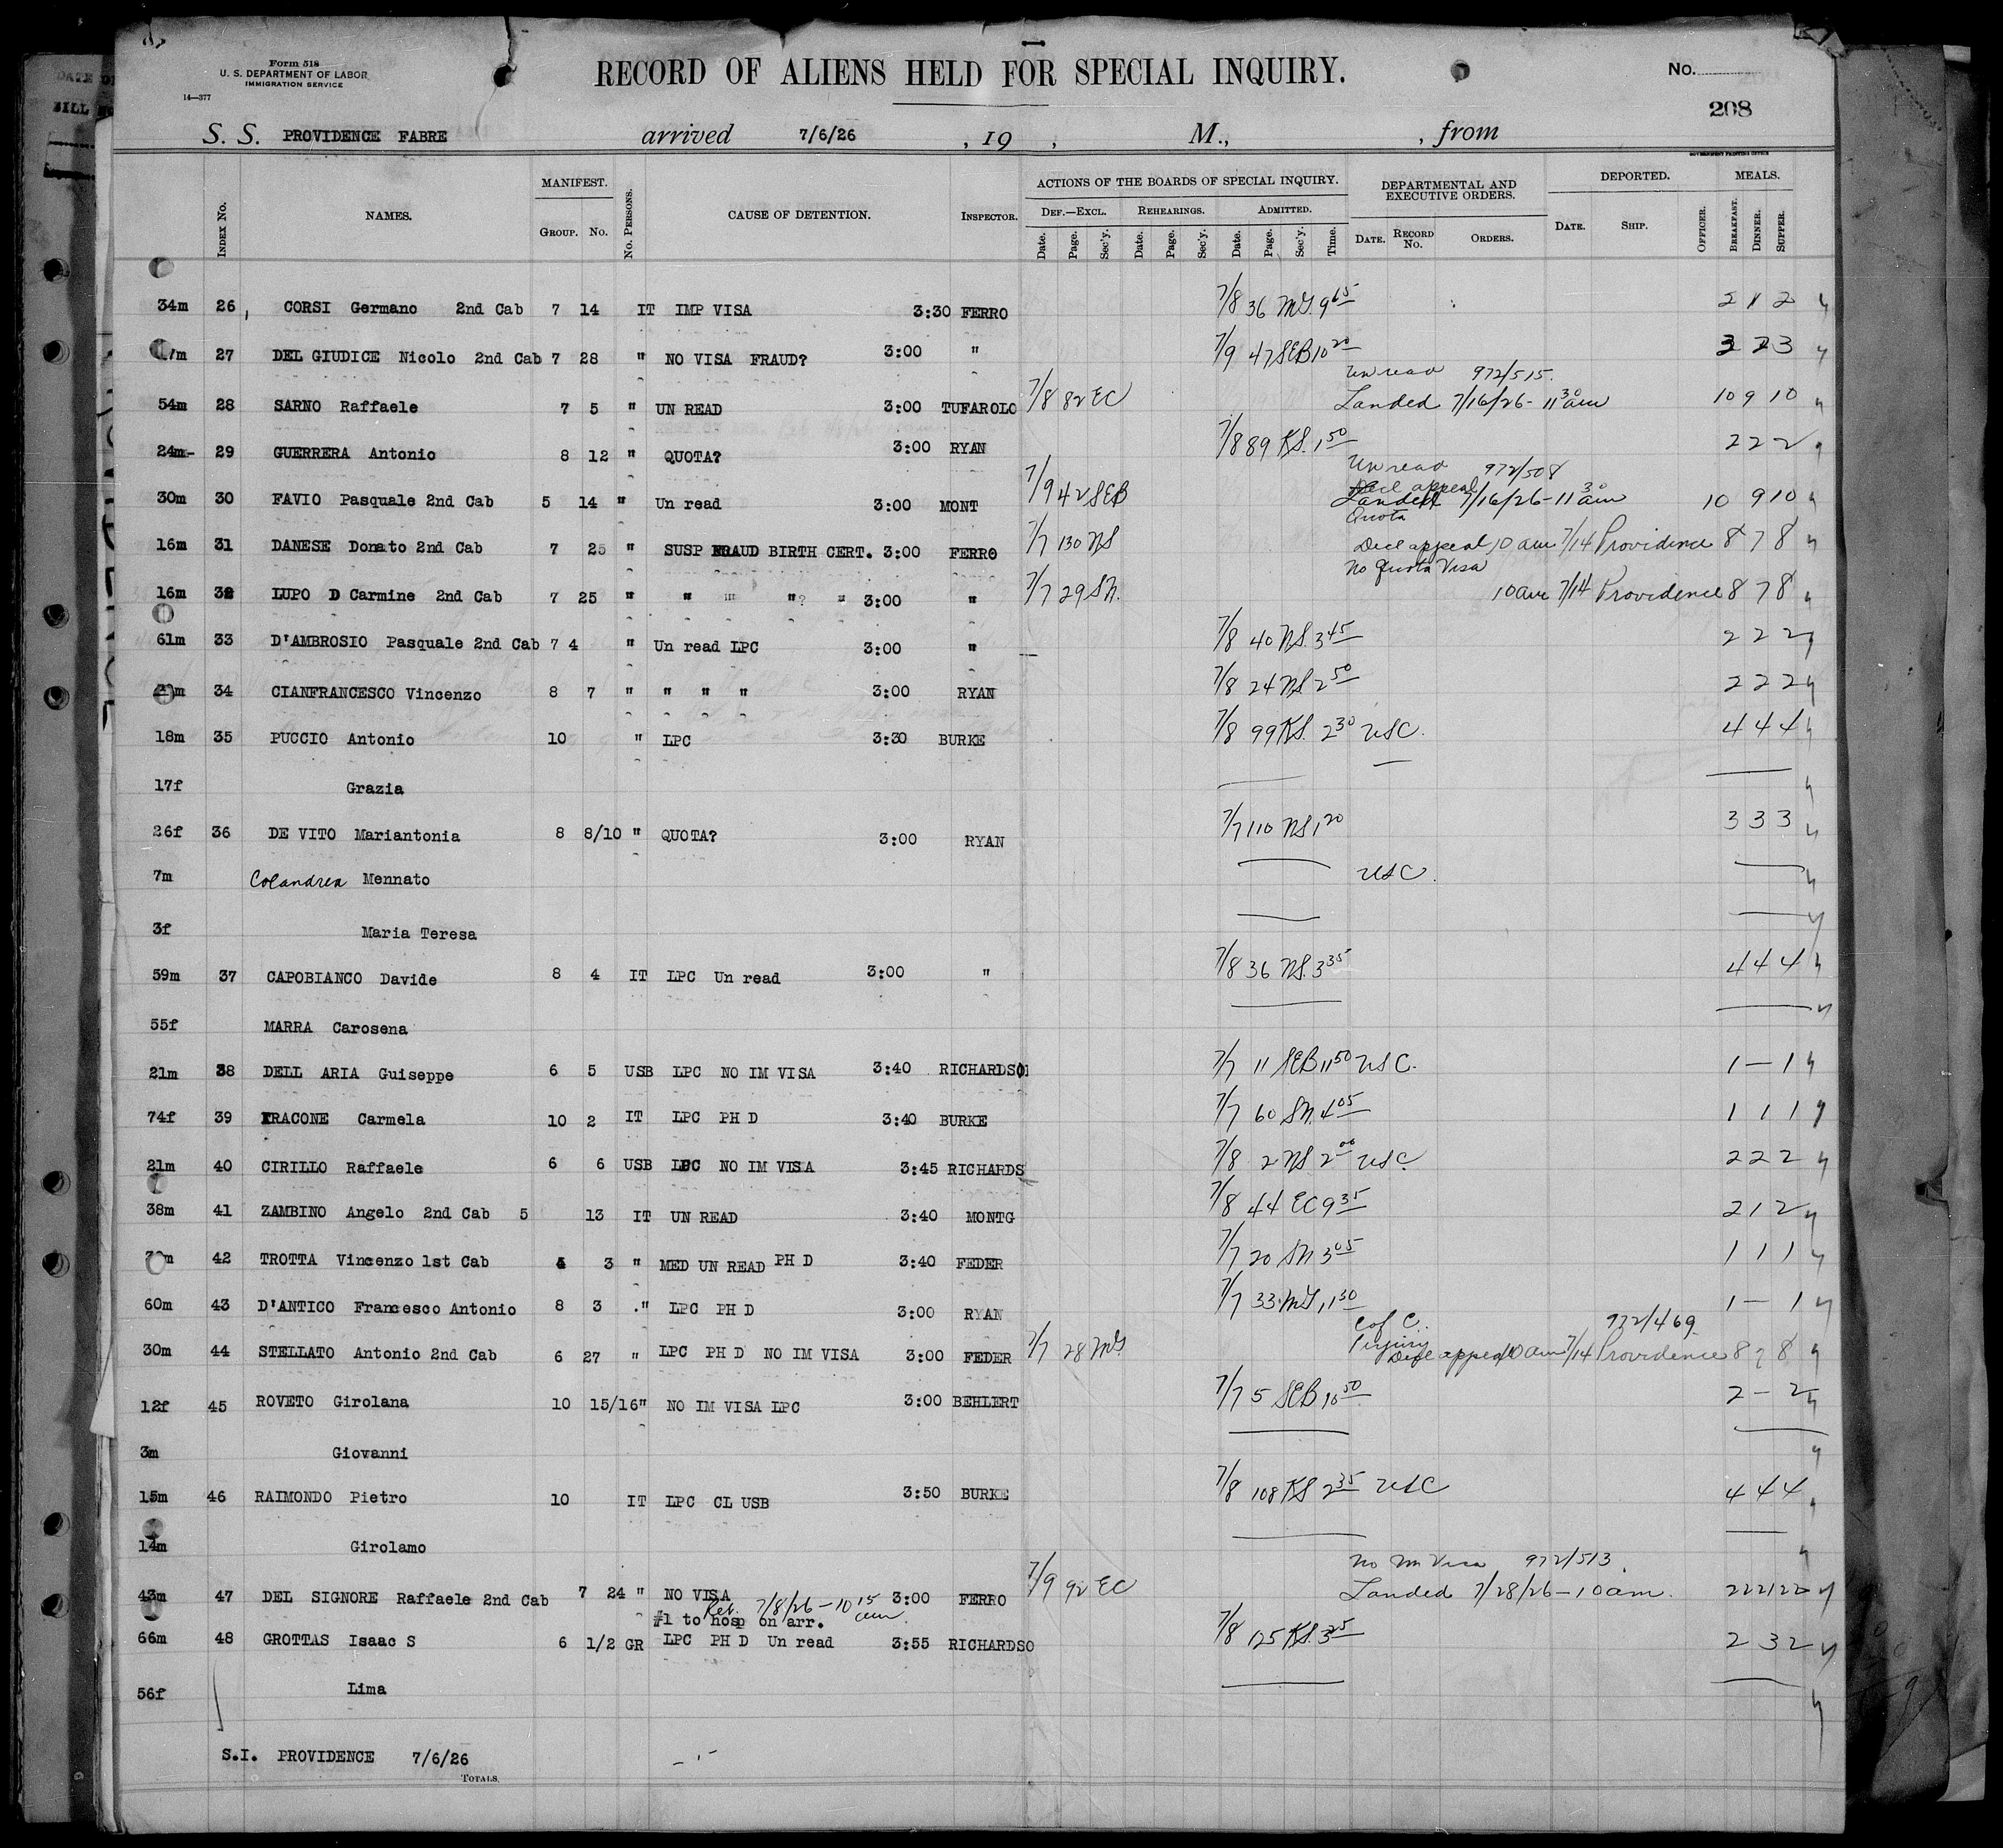 Form 518
U. S. DEPARTMENT OF LABOR
IMMIGRATION SERVICE
14—377
RECORD OF ALIENS HELD FOR SPECIAL INQUIRY.
No.
208
S. S. PROVIDENCE FABRE arrived 7/6/26, 19 , M., , from
GOVERNMENT PRINTING OFFICE
INDEX No. NAMES. MANIFEST. GROUP. No. No. PERSONS. CAUSE OF DETENTION. INSPECTOR. ACTIONS OF THE BOARDS OF SPECIAL INQUIRY. DEPARTMENTAL AND EXECUTIVE ORDERS. DEPORTED. MEALS.
DEF.—EXCL. REHEARINGS. ADMITTED.
Date. Page. Sec'y. Date. Page. Sec'y. Date. Page. Sec'y. Time. DATE. RECORD No. ORDERS. DATE. SHIP. OFFICER. BREAKFAST. DINNER. SUPPER.
34m 26 CORSI Germano 2nd Cab 7 14 IT IMP VISA 3:30 FERRO 7/8 36 MS 2 1 2
27 DEL GIUDICE Nicolo 2nd Cab 7 28 " NO VISA FRAUD? 3:00 " 7/9 47 SEB 10 20 3 2 3
Un read 972/515.
54m 28 SARNO Raffaele 7 5 " UN READ 3:00 TUFAROLO 7/8 82 EC Landed 7/16/26 - 11 30 am 10 9 10
24m- 29 GUERRERA Antonio 8 12 " QUOTA? 3:00 RYAN 7/8 89 KS. 1 50 2 2 2
Un read 972/508
Decl appeal
30m 30 FAVIO Pasquale 2nd Cab 5 14 " Un read 3:00 MONT 7/9 42 SEB Landed 7/16/26 - 11 30 am 10 9 10
Quota
16m 31 DANESE Donato 2nd Cab 7 25 " SUSP FRAUD BIRTH CERT. 3:00 FERRO 7/7 130 NS Decl appeal 10 am 7/14 Providence 8 7 8
No Quota Visa
16m 32 LUPO D Carmine 2nd Cab 7 25 " " " "? " 3:00 " 7/7 29 SN. 10 am 7/14 Providence 8 7 8
61m 33 D'AMBROSIO Pasquale 2nd Cab 7 4 " Un read LPC 3:00 " 7/8 40 NS. 3 45 2 2 2
34 CIANFRANCESCO Vincenzo 8 7 " " " " 3:00 RYAN 7/8 24 NS 2 50 2 2 2
18m 35 PUCCIO Antonio 10 " LPC 3:30 BURKE 7/8 99 KS. 2 30 USC. 4 4 4
17f Grazia
26f 36 DE VITO Mariantonia 8 8/10 " QUOTA? 3:00 RYAN 7/7 110 NS 1 20 3 3 3
7m Colandrea Mennato USC.
3f Maria Teresa
59m 37 CAPOBIANCO Davide 8 4 IT LPC Un read 3:00 " 7/8 36 NS. 3 35 4 4 4
55f MARRA Carosena
21m 38 DELL ARIA Guiseppe 6 5 USB LPC NO IM VISA 3:40 RICHARDSO 7/7 11 SEB 11 50 USC. 1 — 1
74f 39 FRACONE Carmela 10 2 IT LPC PH D 3:40 BURKE 7/7 60 SN. 4 05 1 1 1
21m 40 CIRILLO Raffaele 6 6 USB LPC NO IM VISA 3:45 RICHARDS 7/8 2 NS 2 00 USC. 2 2 2
38m 41 ZAMBINO Angelo 2nd Cab 5 13 IT UN READ 3:40 MONTG 7/8 44 EC 9 35 2 1 2
42 TROTTA Vincenzo 1st Cab 3 " MED UN READ PH D 3:40 FEDER 7/7 20 SN 3 05 1 1 1
60m 43 D'ANTICO Francesco Antonio 8 3 " LPC PH D 3:00 RYAN 7/7 33 MS 1 30 1 — 1
C of C. 972/469
Perjury
30m 44 STELLATO Antonio 2nd Cab 6 27 " LPC PH D NO IM VISA 3:00 FEDER 7/7 28 MS Decl appeal 10 am 7/14 Providence 8 7 8
12f 45 ROVETO Girolana 10 15/16 " NO IM VISA LPC 3:00 BEHLERT 7/7 5 SEB 10 50 2 — 2
3m Giovanni
15m 46 RAIMONDO Pietro 10 IT LPC CL USB 3:50 BURKE 7/8 108 KS 2 35 USC 4 4 4
14m Girolamo
No Im Visa 972/513
43m 47 DEL SIGNORE Raffaele 2nd Cab 7 24 " NO VISA 3:00 FERRO 7/9 92 EC Landed 7/28/26 - 10 am. 22 21 22
Ret. 7/8/26 - 10 15 am
#1 to hosp on arr.
66m 48 GROTTAS Isaac S 6 1/2 GR LPC PH D Un read 3:55 RICHARDSO 7/8 125 KS. 2 3 2
56f Lima
S.I. PROVIDENCE 7/6/26
TOTALS